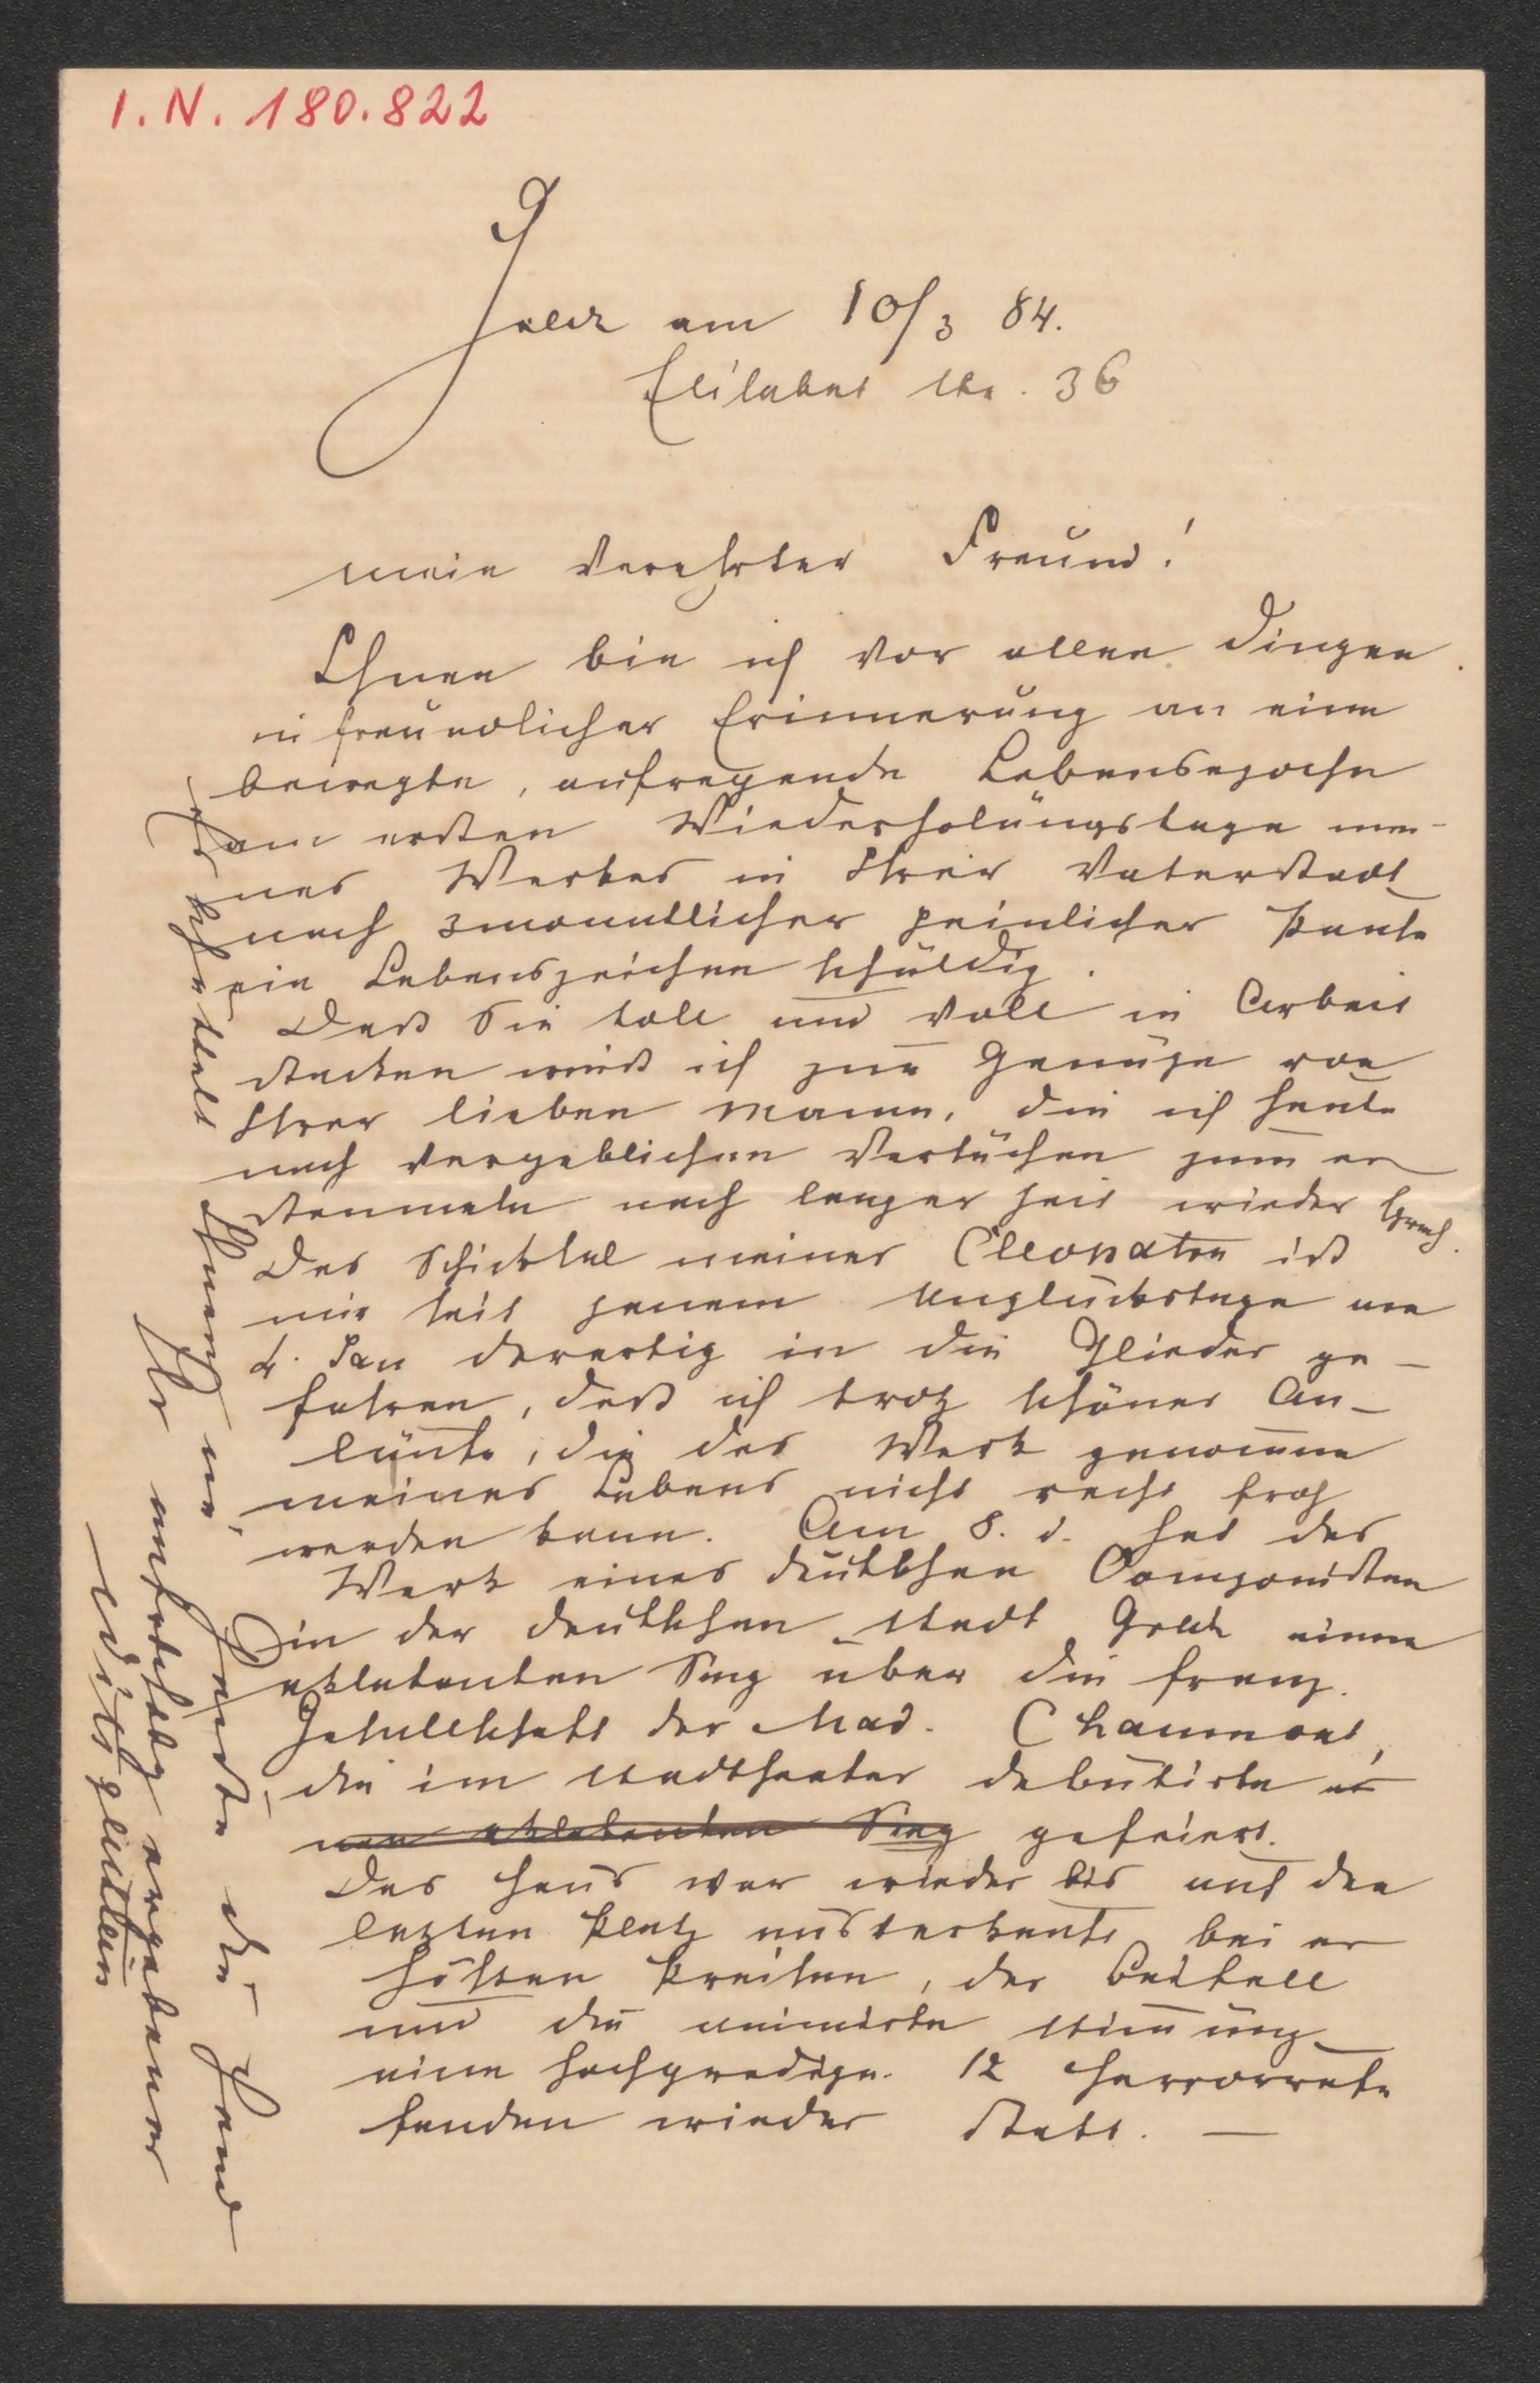 I.N. 180.822
Gratz am 10/3 84.
Elisabet str. 36
mein verehrter Freund!
Ihnen bin ich vor allen Dingen
in freundlicher Erinnerung an eine
bewegte, aufregende Lebensepoche
am ersten Wiederholungstage mei-
nes Werkes in Ihrer Vaterstadt
nach 3monatlicher peinlicher Pause
ein Lebenszeichen schuldig.
Daß Sie toll und voll in Arbeit
stecken weiß ich zur Genüge von
Ihrer lieben Mama, die ich heute
nach vergeblichen Versuchen zum er
stenmale nach langer Zeit wieder sprach.
Das Schicksal meiner Cleopatra ist
mir seit jenem Unglückstage am
4. Jan derartig in die Glieder ge-
fahren, daß ich trotz schöner An-
läufe, die das Werk genommen
meines Lebens nicht recht froh
werden kann. Am 8. d. hat das
Werk eines deutschen Componisten
in der deutschen Stadt Gratz einen
eklatanten Sieg über die franz.
Gesellschaft der Mad. Chaumont,
die im Stadttheater debutirte
nen eklatanten Sieg gefeiert.
Das Haus war wieder bis auf den
letzten Platz ausverkauft bei er
höhten Preisen, der Beifall
und die animirte Stimmung
eine hochgradige. 12 Hervorrufe
fanden wieder statt. —
Es schüttelt Ihnen in Freundschaft die Hand
Ihr aufrichtig ergebener